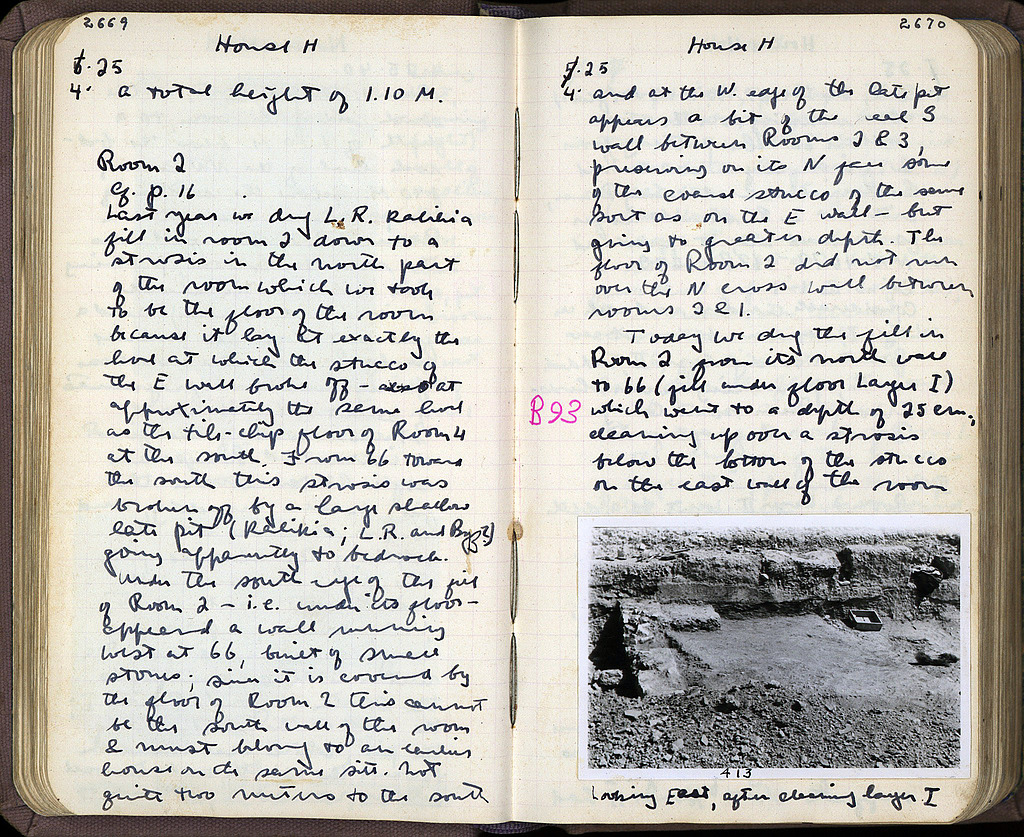 2669
House H
f. 25
4. a total height of 1.10 M.
Room 2
Cf. p. 16
Last year we dug L.R. Kalikia
fill in room 2 down to a
strosis in the north part
of the room which we took
to be the floor of the room
because it lay at exactly the
level at which the stucco of
the E wall broke off - at
approximately the same level
as the tile-chip floor of Room 4
at the south. From 66 toward
the south this strosis was
broken off by a large shallow
late pit (Kalikia; L.R. and Byz?)
going apparently to bedrock.
Under the south edge of the fill
of Room 2 - i.e. under its floor -
appeared a wall running
west at 66, built of small
stones; since it is covered by
the floor of Room 2 this cannot
be the south wall of the room
& must belong to an earlier
house on the same site. Not
quite two meters to the south
2670
House H
f. 25
4. and at the W. edge of the late pit
appears a bit of the real S
wall between Rooms 2 & 3,
preserving on its N face some
of the coarse stucco of the same
sort as on the E wall - but
going to greater depth. The
floor of Room 2 did not run
over the N cross wall between
rooms 2 & 1.
Today we dug the fill in
Room 2 from its north wall
to 66 (fill under floor Layer I)
which went to a depth of 25 cm.,
cleaning up over a strosis
below the bottom of the stucco
on the east wall of the room
B93
413
Looking East, after cleaning layer I